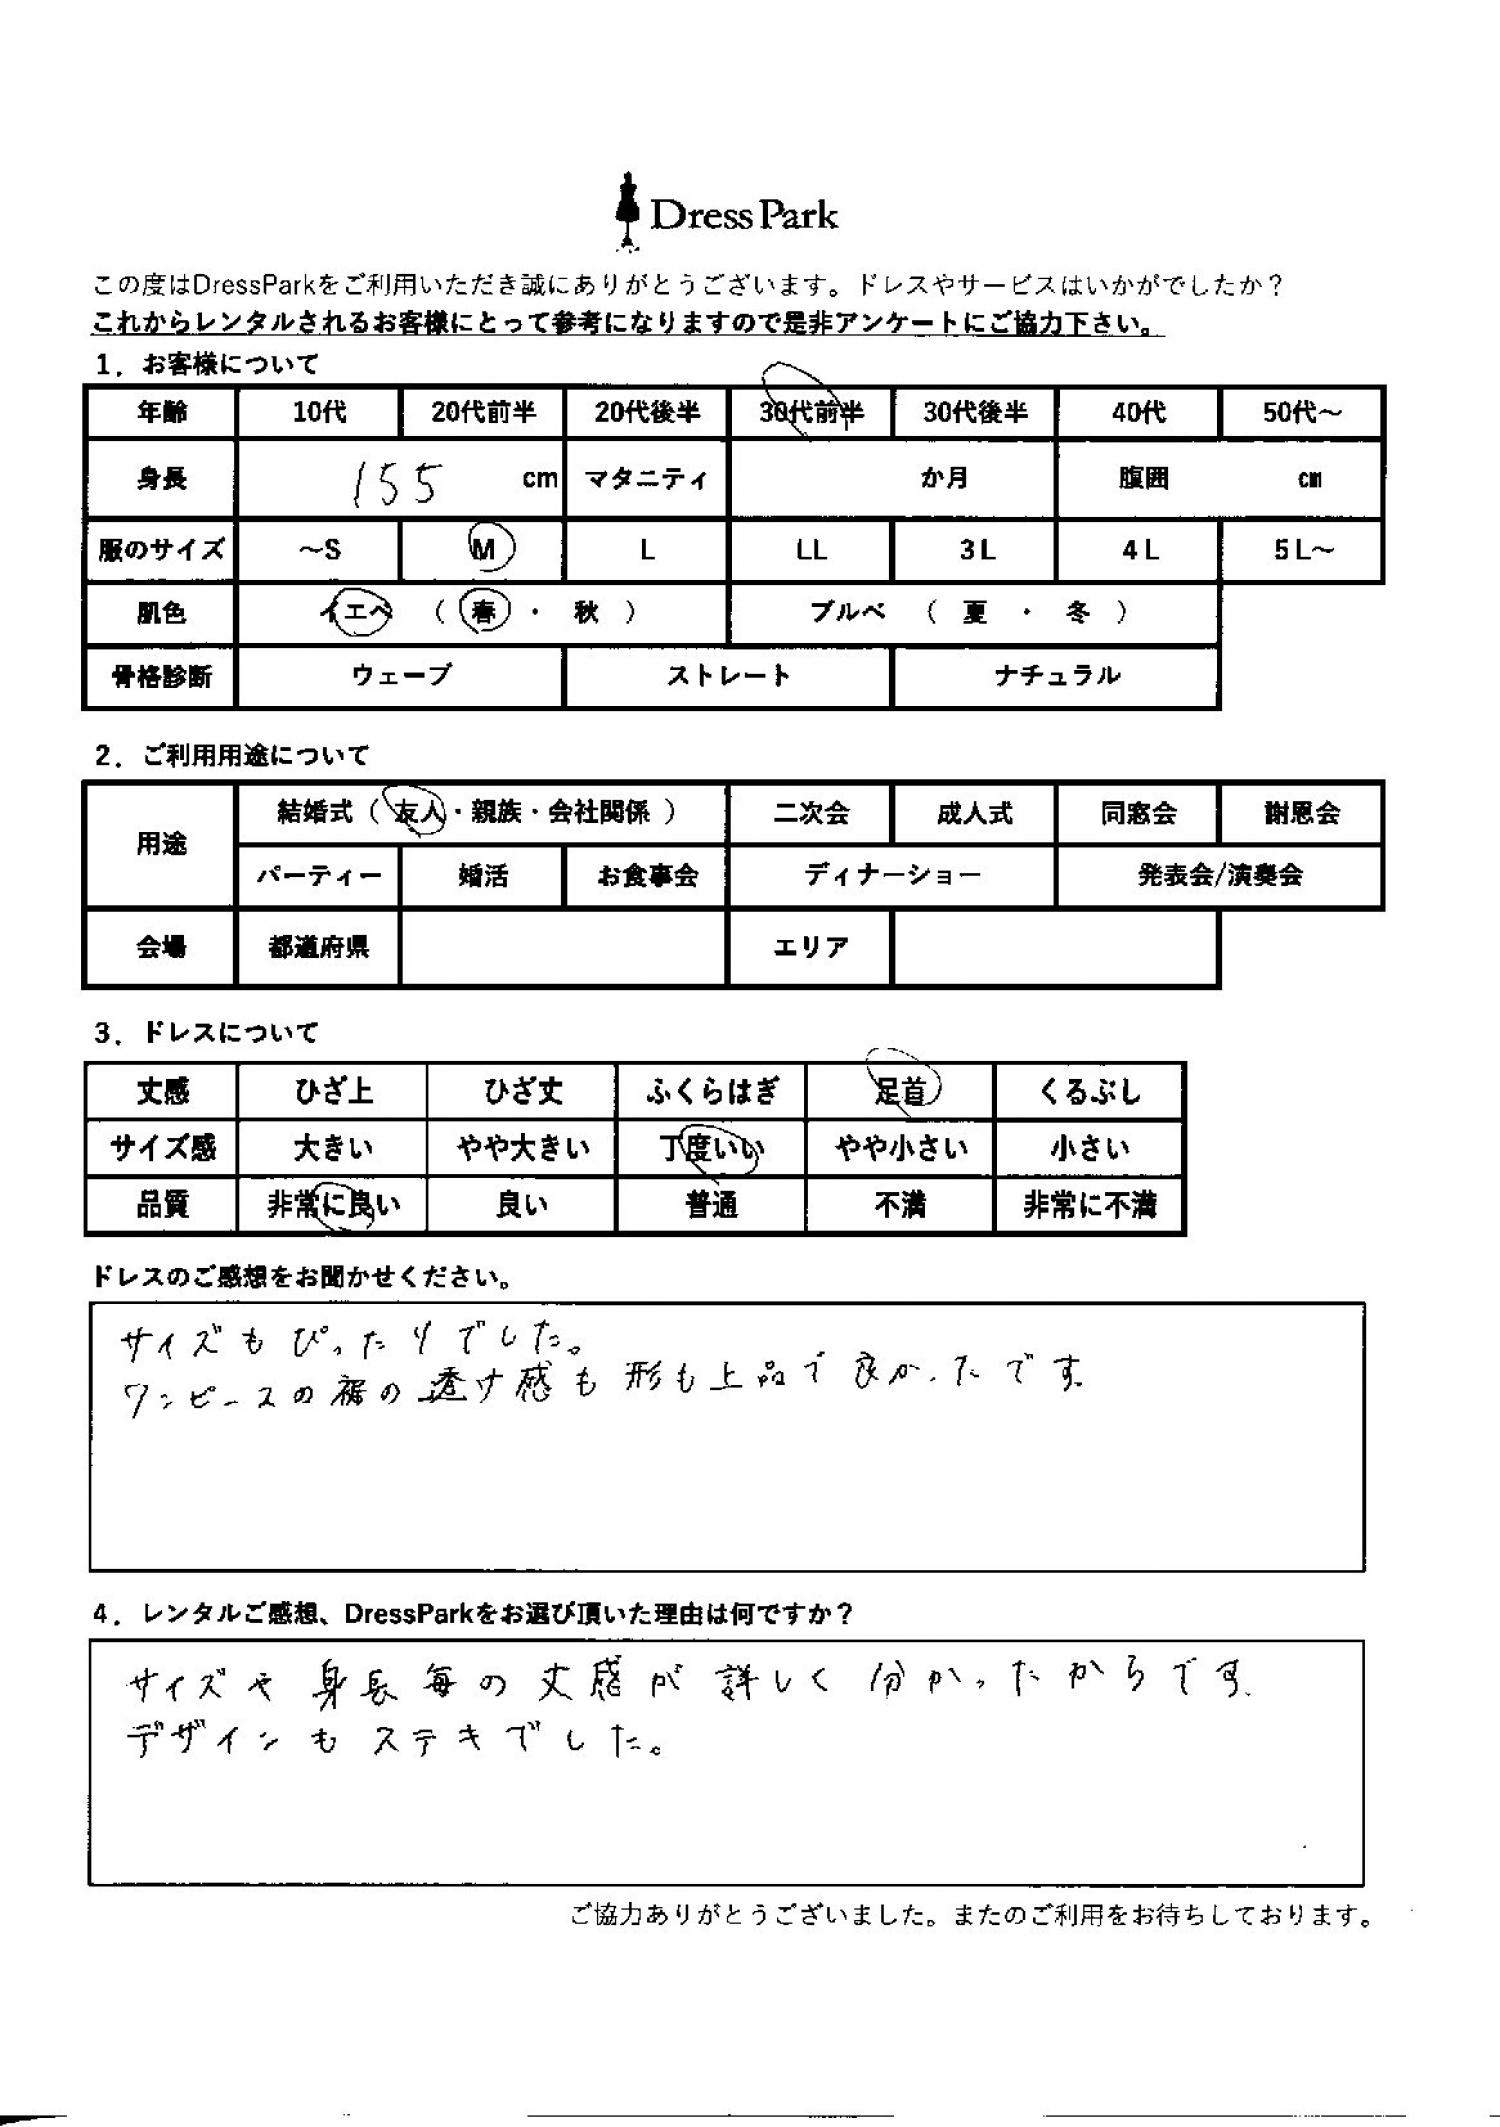 Dress Park
この度はDressParkをご利用いただき誠にありがとうございます。ドレスやサービスはいかがでしたか？
これからレンタルされるお客様にとって参考になりますので是非アンケートにご協力下さい。
1．お客様について
年齢 10代 20代前半 20代後半 30代前半 30代後半 40代 50代～
身長 155 cm マタニティ か月 腹囲 cm
服のサイズ ～S M L LL 3L 4L 5L～
肌色 イエベ （ 春 ・ 秋 ） ブルベ （ 夏 ・ 冬 ）
骨格診断 ウェーブ ストレート ナチュラル
2．ご利用用途について
用途 結婚式（ 友人・親族・会社関係 ） 二次会 成人式 同窓会 謝恩会
パーティー 婚活 お食事会 ディナーショー 発表会/演奏会
会場 都道府県 エリア
3．ドレスについて
丈感 ひざ上 ひざ丈 ふくらはぎ 足首 くるぶし
サイズ感 大きい やや大きい 丁度いい やや小さい 小さい
品質 非常に良い 良い 普通 不満 非常に不満
ドレスのご感想をお聞かせください。
サイズもぴったりでした。
ワンピースの裾の透け感も形も上品で良かったです。
4．レンタルご感想、DressParkをお選び頂いた理由は何ですか？
サイズや身長毎の丈感が詳しく分かったからです。
デザインもステキでした。
ご協力ありがとうございました。またのご利用をお待ちしております。